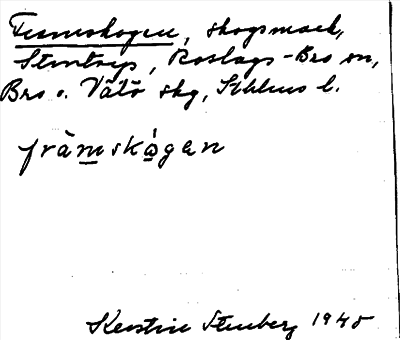 Framskogen, skogsmark,
Stentorp, Roslags-Bro sn,
Bro o. Vätö skg, Sthlms l.
främskågen
Kerstin Stenberg 1945